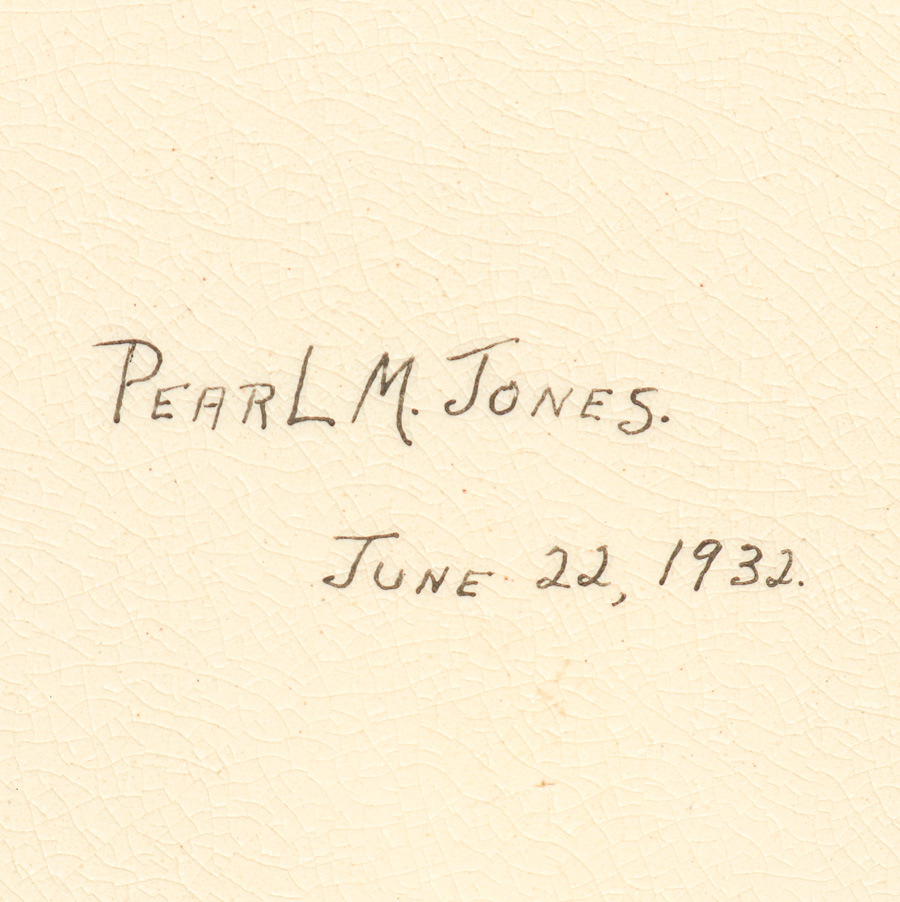 PEARL M. JONES.
JUNE 22, 1932.